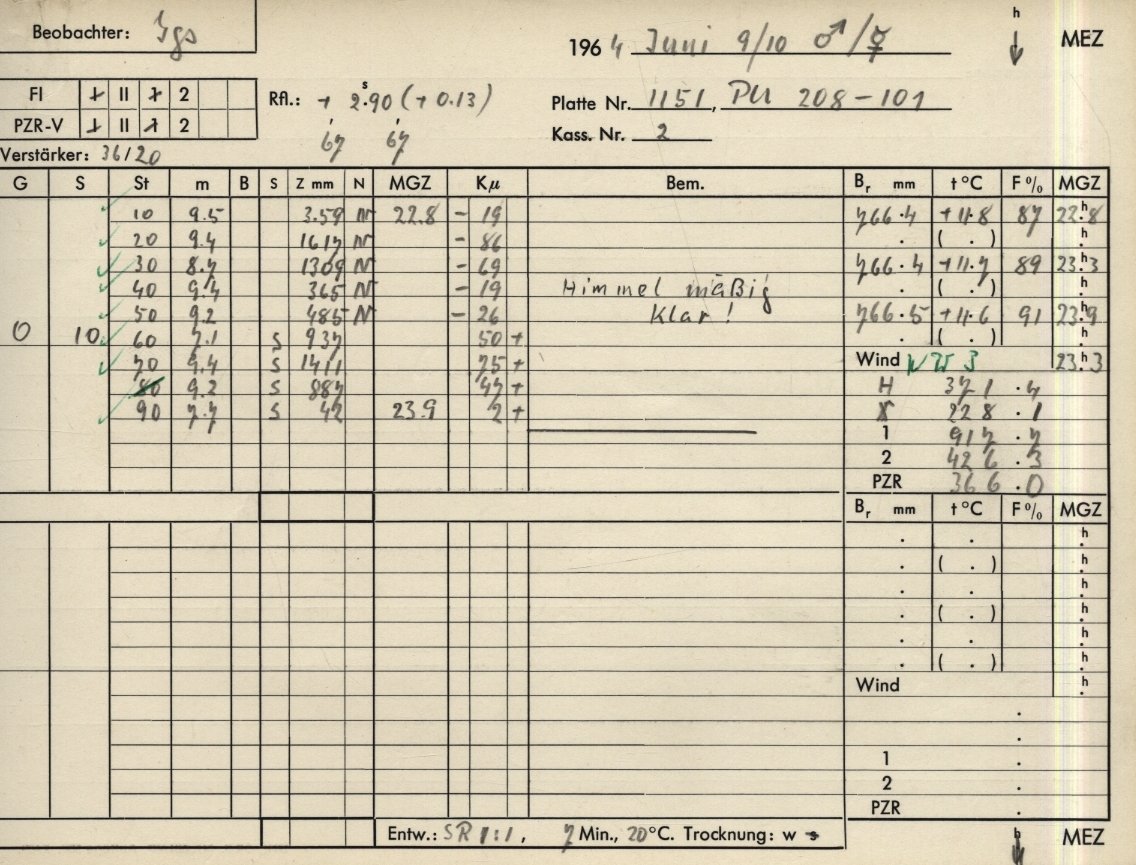 Beobachter: Igs
1964 Juni 9/10 ♂/☿ h MEZ
FI I II 1 2
PZR-V I II 1 2
Rfl.: + 2.ˢ90 (+ 0.13)
67 67
Platte Nr. 1151, PU 208-101
Kass. Nr. 2
Verstärker: 36/20
G S St m B S Z mm N MGZ Kμ Bem. Br mm t °C F % MGZ
10 9.5 3.59 N 22.8 - 19 766.4 +11.8 87 22.ʰ8
20 9.4 1617 N - 86 . ( . ) . h
30 8.7 1309 N - 69 766.4 +11.7 89 23.ʰ3
40 9.4 365 N - 19 Himmel mäßig . ( . ) . h
50 9.2 485 N - 26 Klar! 766.5 +11.6 91 23.ʰ9
0 10 60 7.1 S 937 50 + . ( . ) . h
70 9.4 S 1411 75 + Wind NW 3 23.ʰ3
80 9.2 S 887 47 + H 371 .4
90 7.7 S 42 23.9 2 + 228 .1
1 917 .7
2 426 .3
PZR 366 .0
Br mm t °C F % MGZ
. . h
. ( . ) . h
. . h
. ( . ) . h
. . h
. ( . ) . h
Wind . h
.
.
1 .
2 .
PZR .
Entw.: SR 1:1, 7 Min., 20°C. Trocknung: w s h MEZ